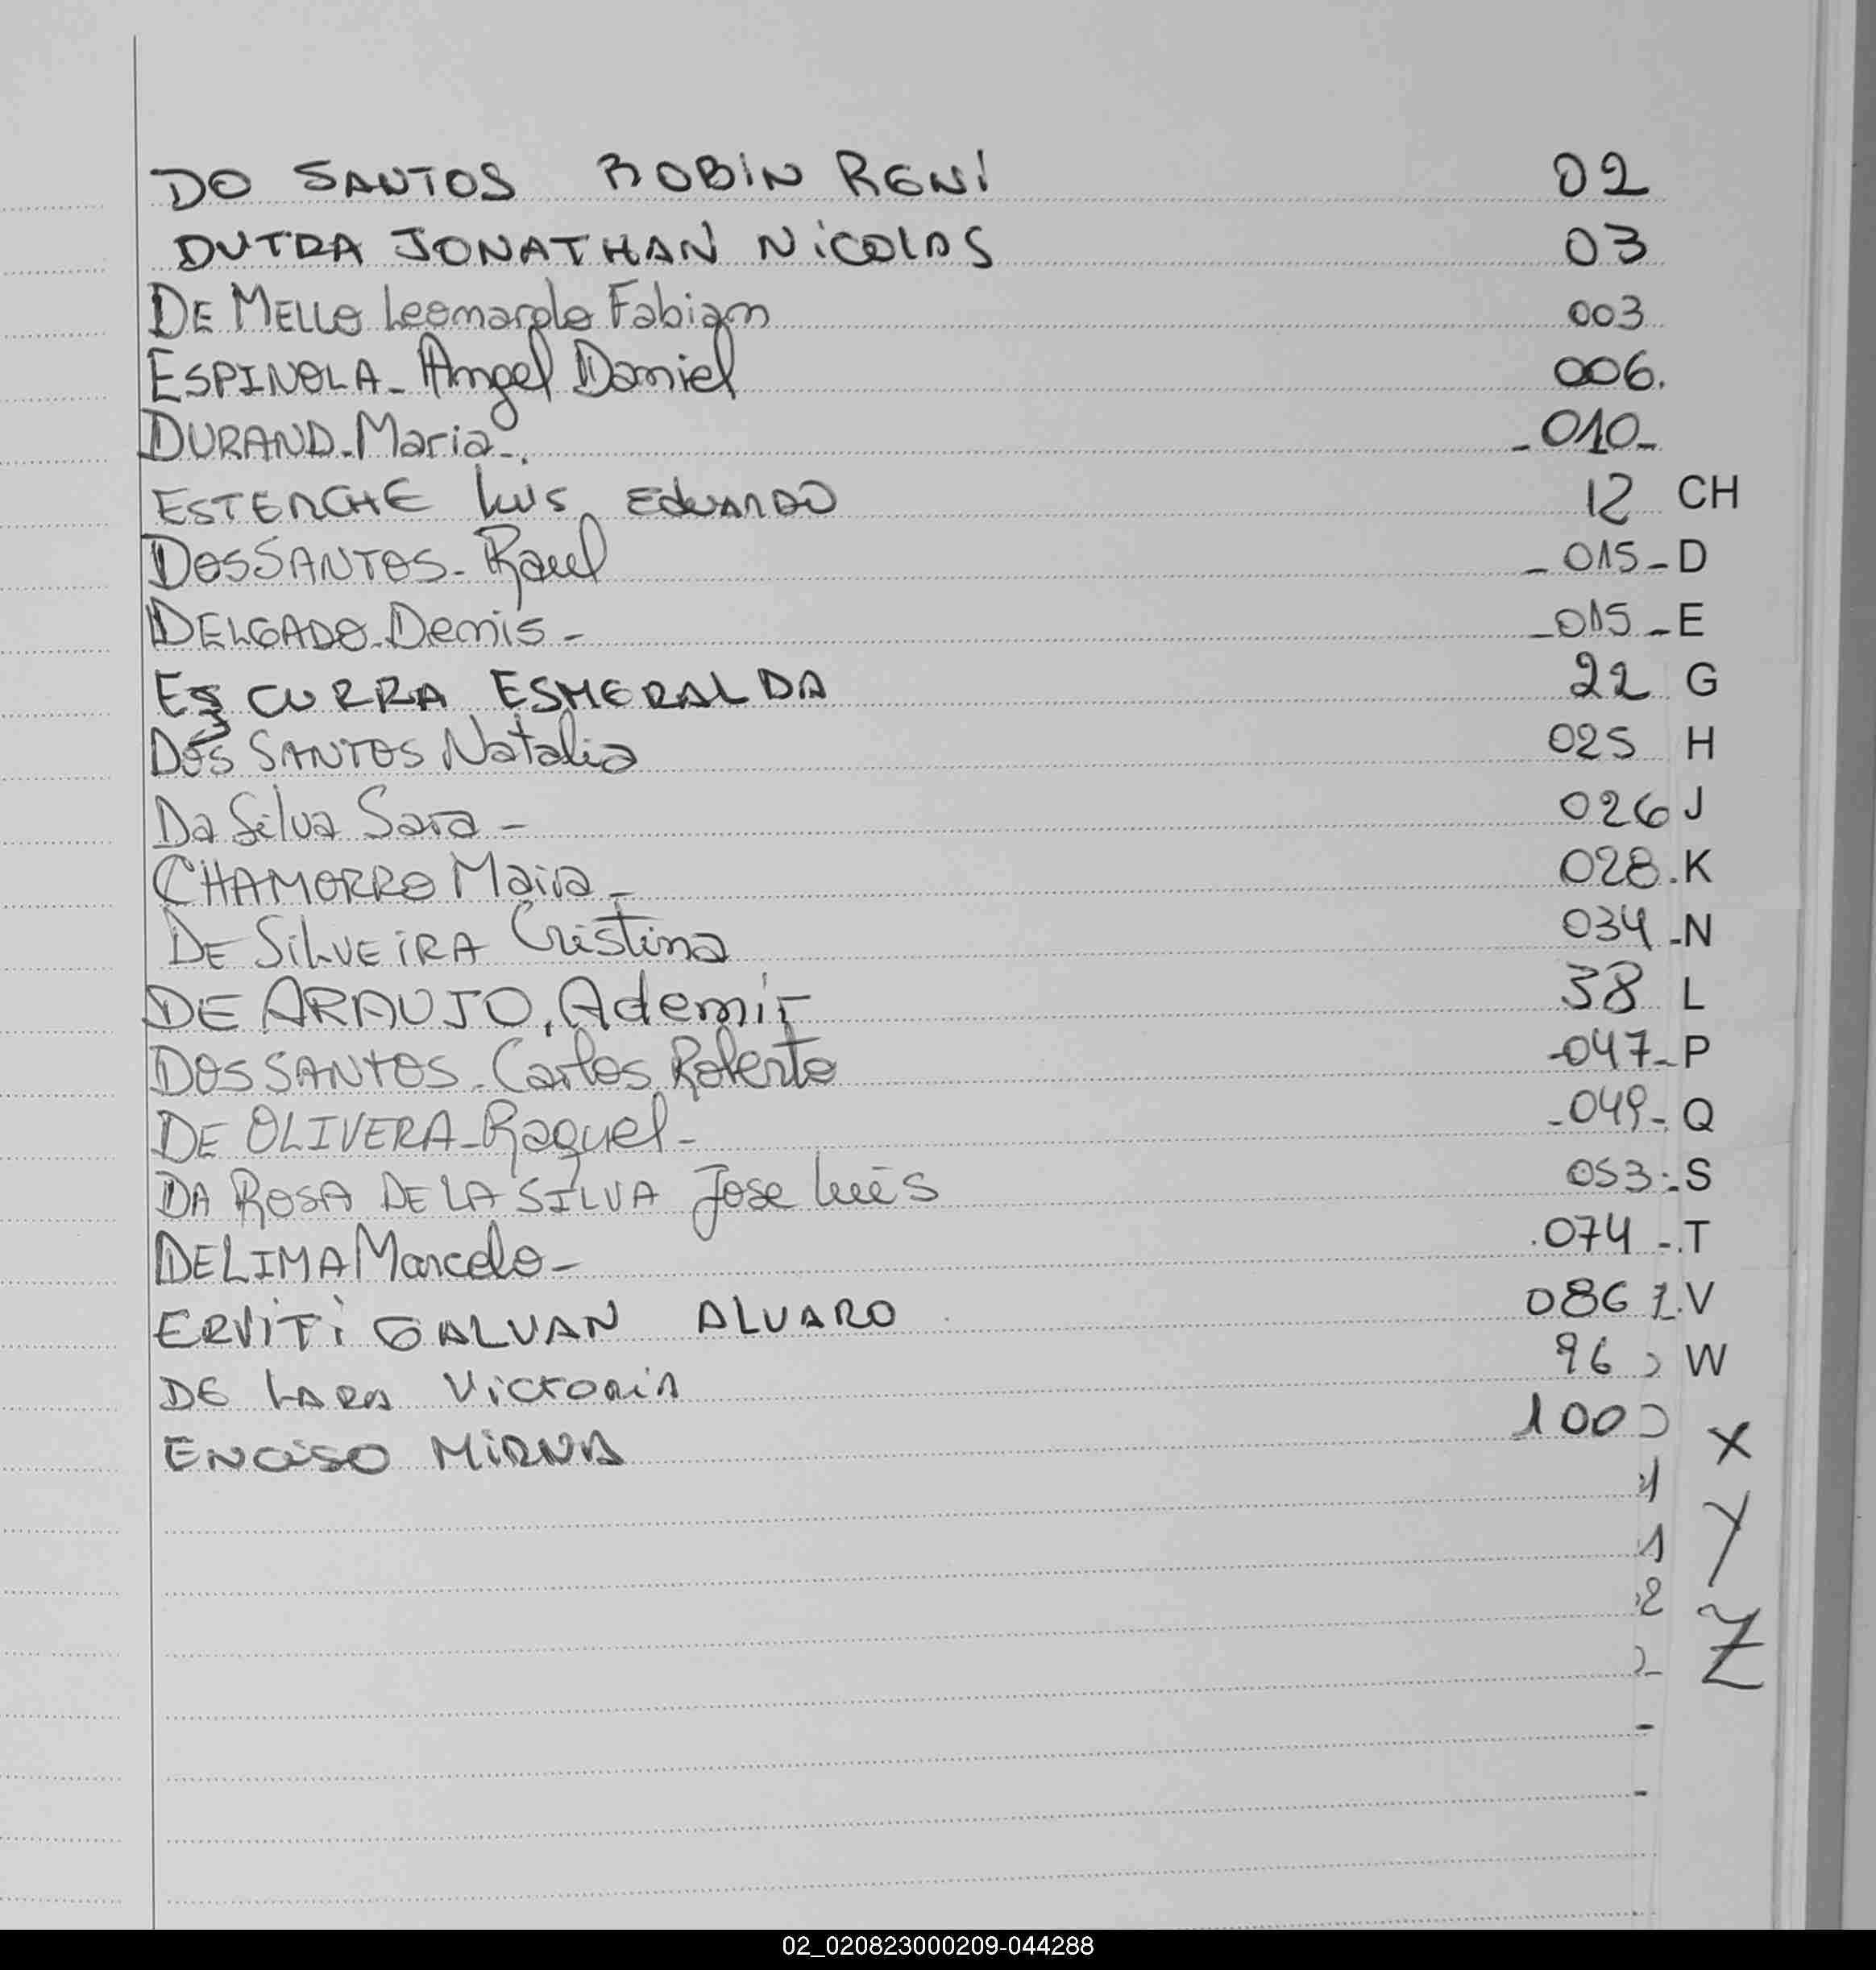 DO SANTOS ROBIN RENI 02
DUTRA JONATHAN NICOLAS 03
DE MELLO Leonardo Fabian 003
ESPINOLA - Angel Daniel 006.
DURAND - Maria -. - 010 -
ESTERCHE Luis EDUARDO 12 CH
DOS SANTOS - Raul - 015 - D
DELGADO - Demis - - 015 - E
EZCURRA ESMERALDA 22 G
DOS SANTOS Natalia 025 H
Da Silva Sara - 026 J
CHAMORRO Maira - 028. K
DE SILVEIRA Cristina 034 - N
DE ARAUJO, Ademir 38 L
DOS SANTOS - Carlos Roberto - 047 - P
DE OLIVERA - Raquel - - 049 - Q
DA ROSA DE LA SILVA Jose Luis 053 - S
DE LIMA Marcelo - 074 - T
ERVITI GALVAN ALVARO 086 V
DE LARA VICTORIA 96 W
ENCISO MIRNA 100 X
1
1 Y
2
Z
02_020823000209-044288